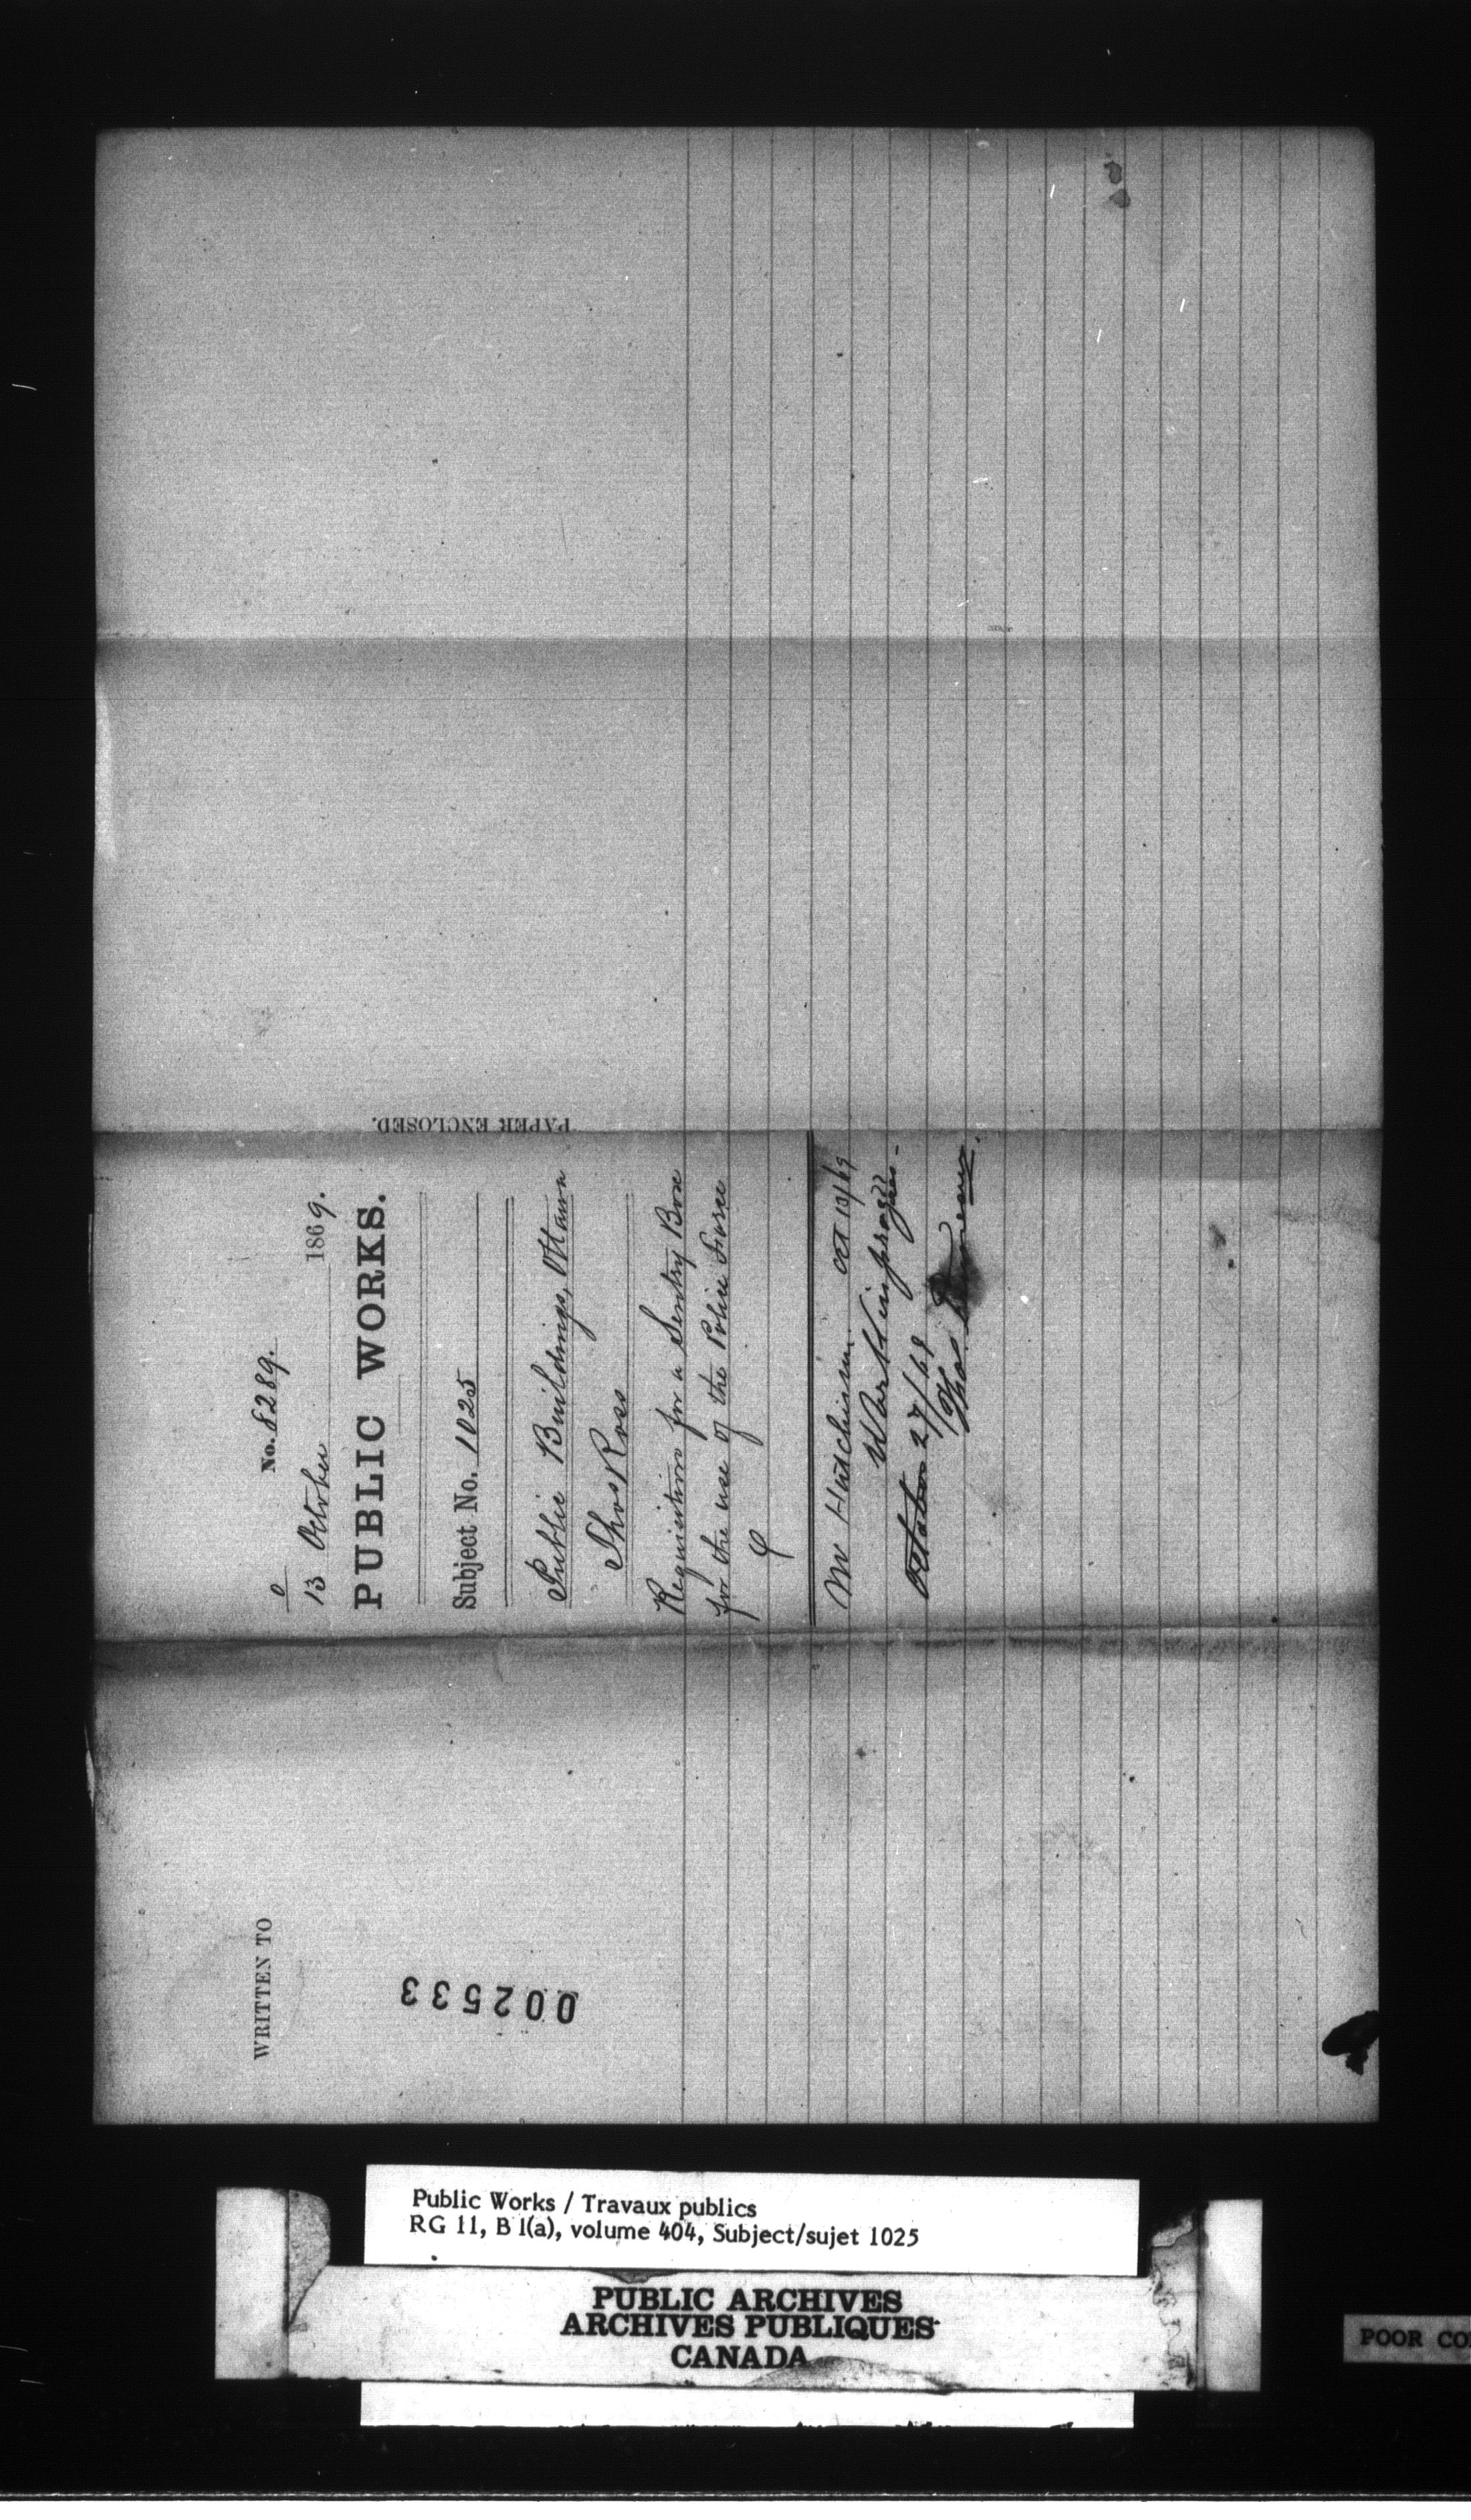 0
No. 8289.
13 October 1869.
PUBLIC WORKS.
Subject No. 1025
Public Buildings, Ottawa
Thos Ross
Requisition for a Sentry Box
for the use of the Police Force
Mr Hutchison Oct 13/69
Work in progress -
October 27/69
Thos
PAPER ENCLOSED.
WRITTEN TO
002533
Public Works / Travaux publics
RG 11, B 1(a), volume 404, Subject/sujet 1025
PUBLIC ARCHIVES
ARCHIVES PUBLIQUES
CANADA
POOR